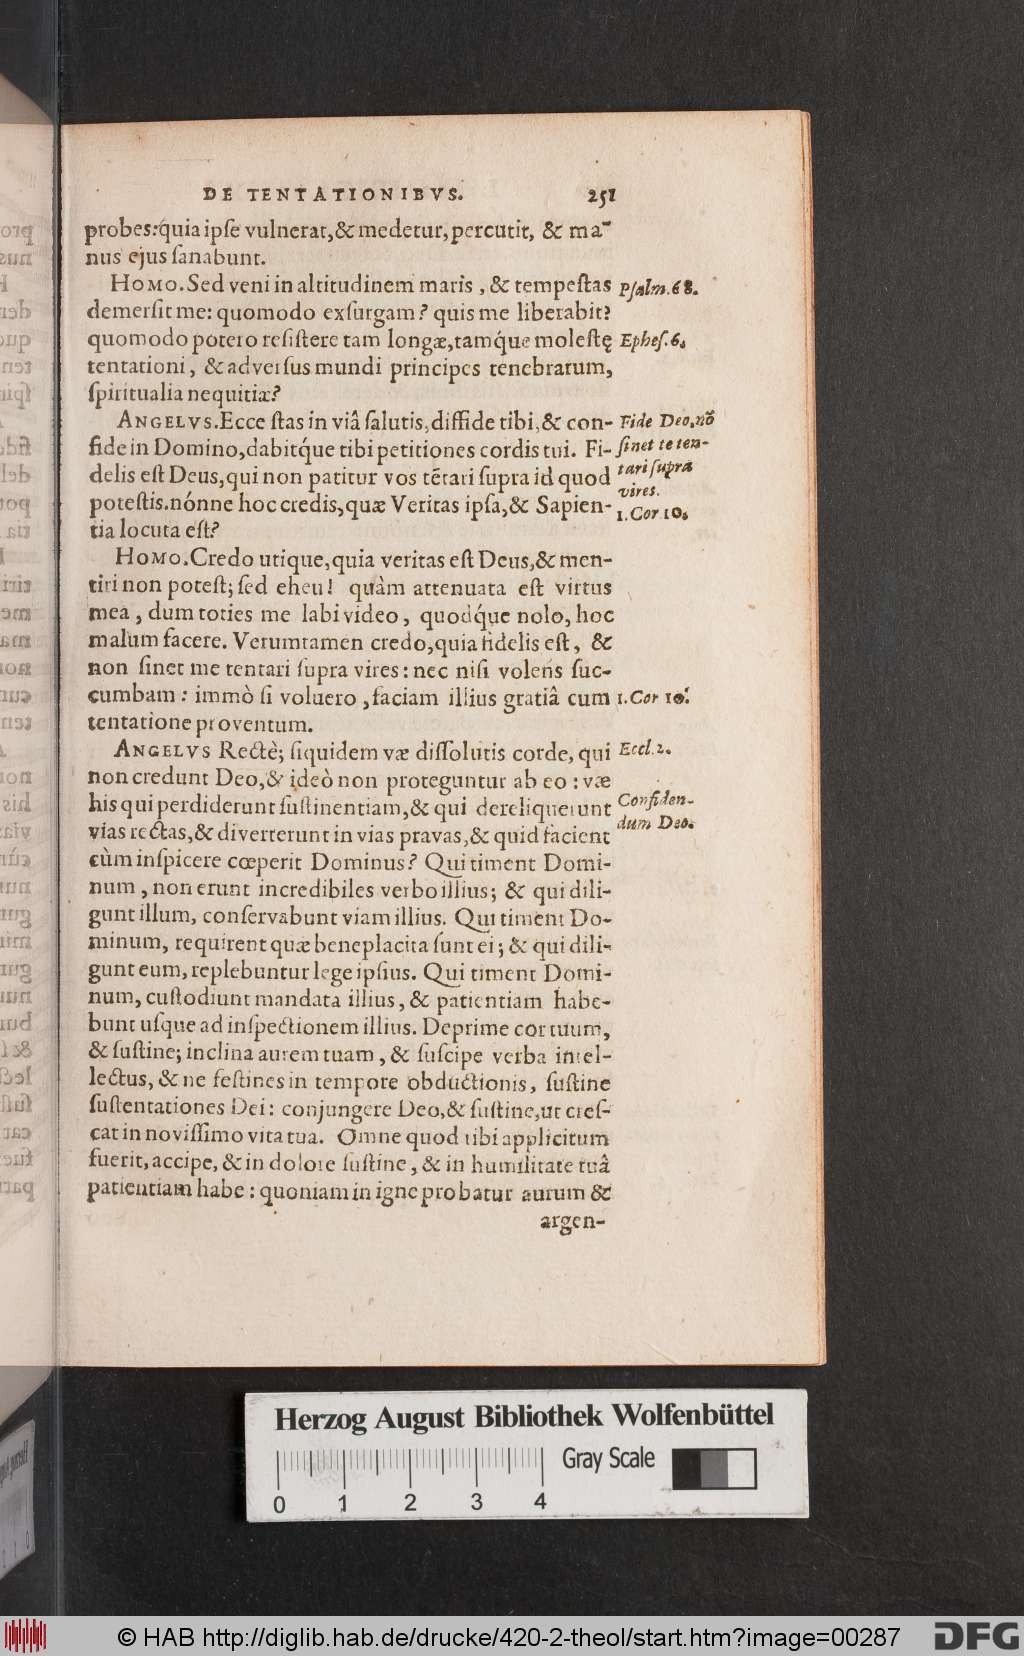 DE TENTATIONIBVS. 251
probes: quia ipſe vulnerat, & medetur, percutit, & ma-
nus ejus ſanabunt.
HOMO. Sed veni in altitudinem maris, & tempeſtas
demerſit me: quomodo exſurgam? quis me liberabit?
quomodo potero reſiſtere tam longæ, tamq́ue moleſtę
tentationi, & adverſus mundi principes tenebrarum,
ſpiritualia nequitiæ?
ANGELVS. Ecce ſtas in viâ ſalutis, diffide tibi, & con-
fide in Domino, dabitq́ue tibi petitiones cordis tui. Fi-
delis eſt Deus, qui non patitur vos tẽtari ſupra id quod
poteſtis. nónne hoc credis, quæ Veritas ipſa, & Sapien-
tia locuta eſt?
HOMO. Credo utique, quia veritas eſt Deus, & men-
tiri non poteſt; ſed eheu! quàm attenuata eſt virtus
mea, dum toties me labi video, quodq́ue nolo, hoc
malum facere. Verumtamen credo, quia fidelis eſt, &
non ſinet me tentari ſupra vires: nec niſi volens ſuc-
cumbam: immò ſi voluero, faciam illius gratiâ cum
tentatione proventum.
ANGELVS Rectè; ſiquidem væ diſſolutis corde, qui
non credunt Deo, & ideò non proteguntur ab eo: væ
his qui perdiderunt ſuſtinentiam, & qui dereliquerunt
vias rectas, & diverterunt in vias pravas, & quid facient
cùm inſpicere cœperit Dominus? Qui timent Domi-
num, non erunt incredibiles verbo illius; & qui dili-
gunt illum, conſervabunt viam illius. Qui timent Do-
minum, requirent quæ beneplacita ſunt ei; & qui dili-
gunt eum, replebuntur lege ipſius. Qui timent Domi-
num, cuſtodiunt mandata illius, & patientiam habe-
bunt uſque ad inſpectionem illius. Deprime cor tuum,
& ſuſtine; inclina aurem tuam, & ſuſcipe verba intel-
lectus, & ne feſtines in tempore obductionis, ſuſtine
ſuſtentationes Dei: conjungere Deo, & ſuſtine, ut creſ-
cat in noviſſimo vita tua. Omne quod tibi applicitum
fuerit, accipe, & in dolore ſuſtine, & in humilitate tuâ
patientiam habe: quoniam in igne probatur aurum &
argen-
Pſalm. 68.
Epheſ. 6.
Fide Deo, nõ
ſinet te ten-
tari ſupra
vires.
1. Cor 10.
1. Cor 10.
Eccl. 2.
Confiden-
dum Deo.
Herzog August Bibliothek Wolfenbüttel
Gray Scale
0 1 2 3 4
© HAB http://diglib.hab.de/drucke/420-2-theol/start.htm?image=00287
DFG